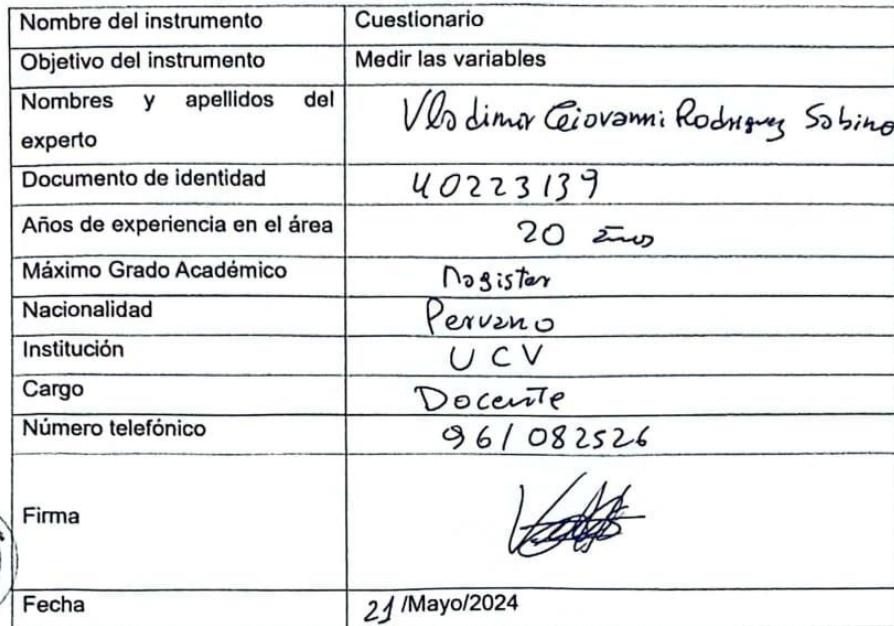 Nombre del instrumento Cuestionario
Objetivo del instrumento Medir las variables
Nombres y apellidos del
experto Vladimir Giovanni Rodriguez Sabino
Documento de identidad 40223139
Años de experiencia en el área 20 años
Máximo Grado Académico Magister
Nacionalidad Peruano
Institución UCV
Cargo Docente
Número telefónico 961082526
Firma
Fecha 21/Mayo/2024